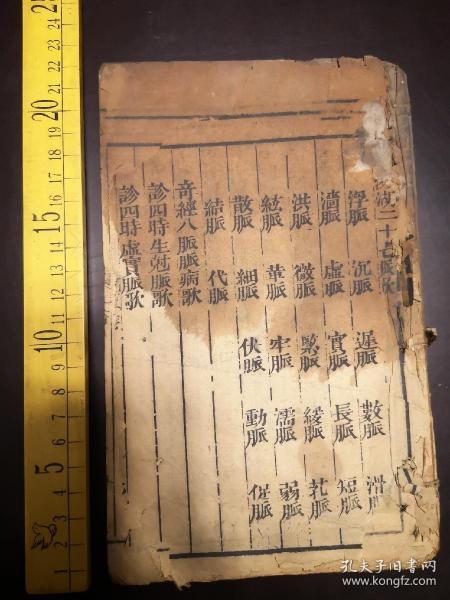 湖二十七脈歌
浮脈 沉脈 遲脈 數脈 滑
濇脈 虛脈 實脈 長脈 短脈
洪脈 微脈 緊脈 緩脈 芤脈
絃脈 革脈 牢脈 濡脈 弱脈
散脈 細脈 伏脈 動脈 促脈
結脈 代脈
奇經八脈脈病歌
診四時生尅脈歌
診四時虛實脈歌
24 23 22 21 20 19 18 17 16 15 14 13 12 11 10 9 8 7 6 5 4 3 2 1
孔夫子旧书网
www.kongfz.com